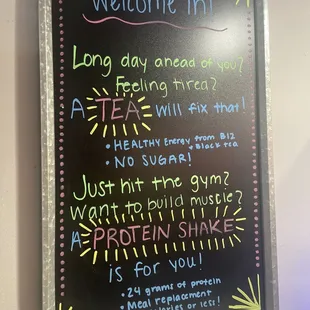 Welcome in!
Long day ahead of you?
Feeling tired?
A TEA will fix that!
• HEALTHY Energy from B12
+ Black tea
• NO SUGAR!
Just hit the gym?
Want to build muscle?
A PROTEIN SHAKE
is for you!
• 24 grams of protein
• Meal replacement
or less!